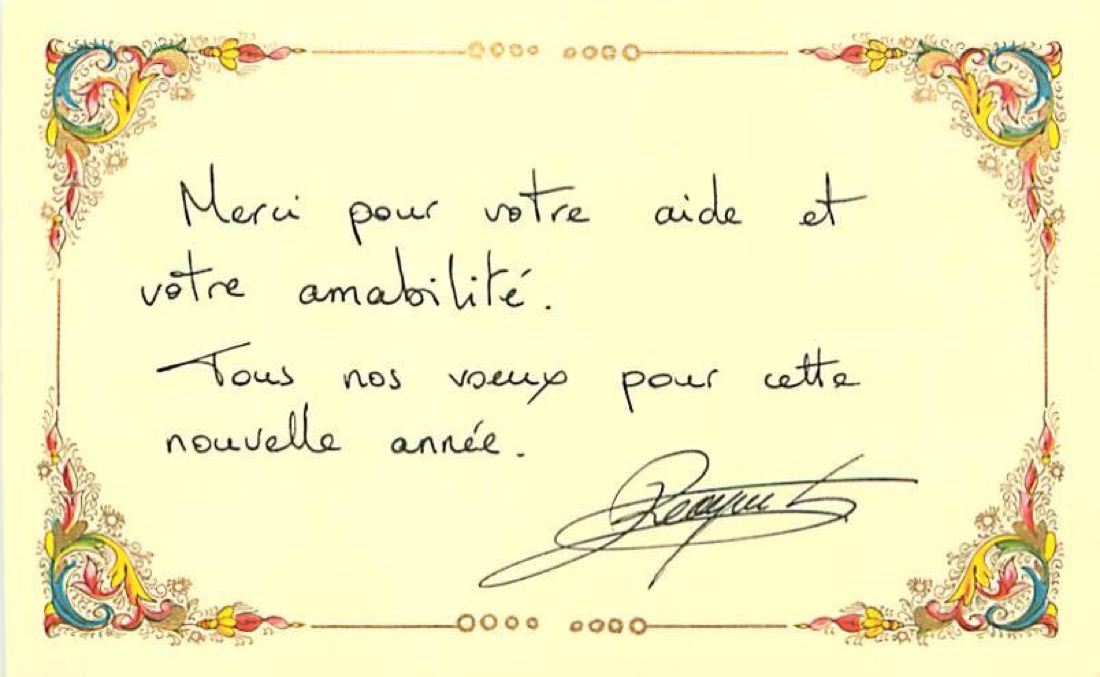 Merci pour votre aide et
votre amabilité.
Tous nos vœux pour cette
nouvelle année.